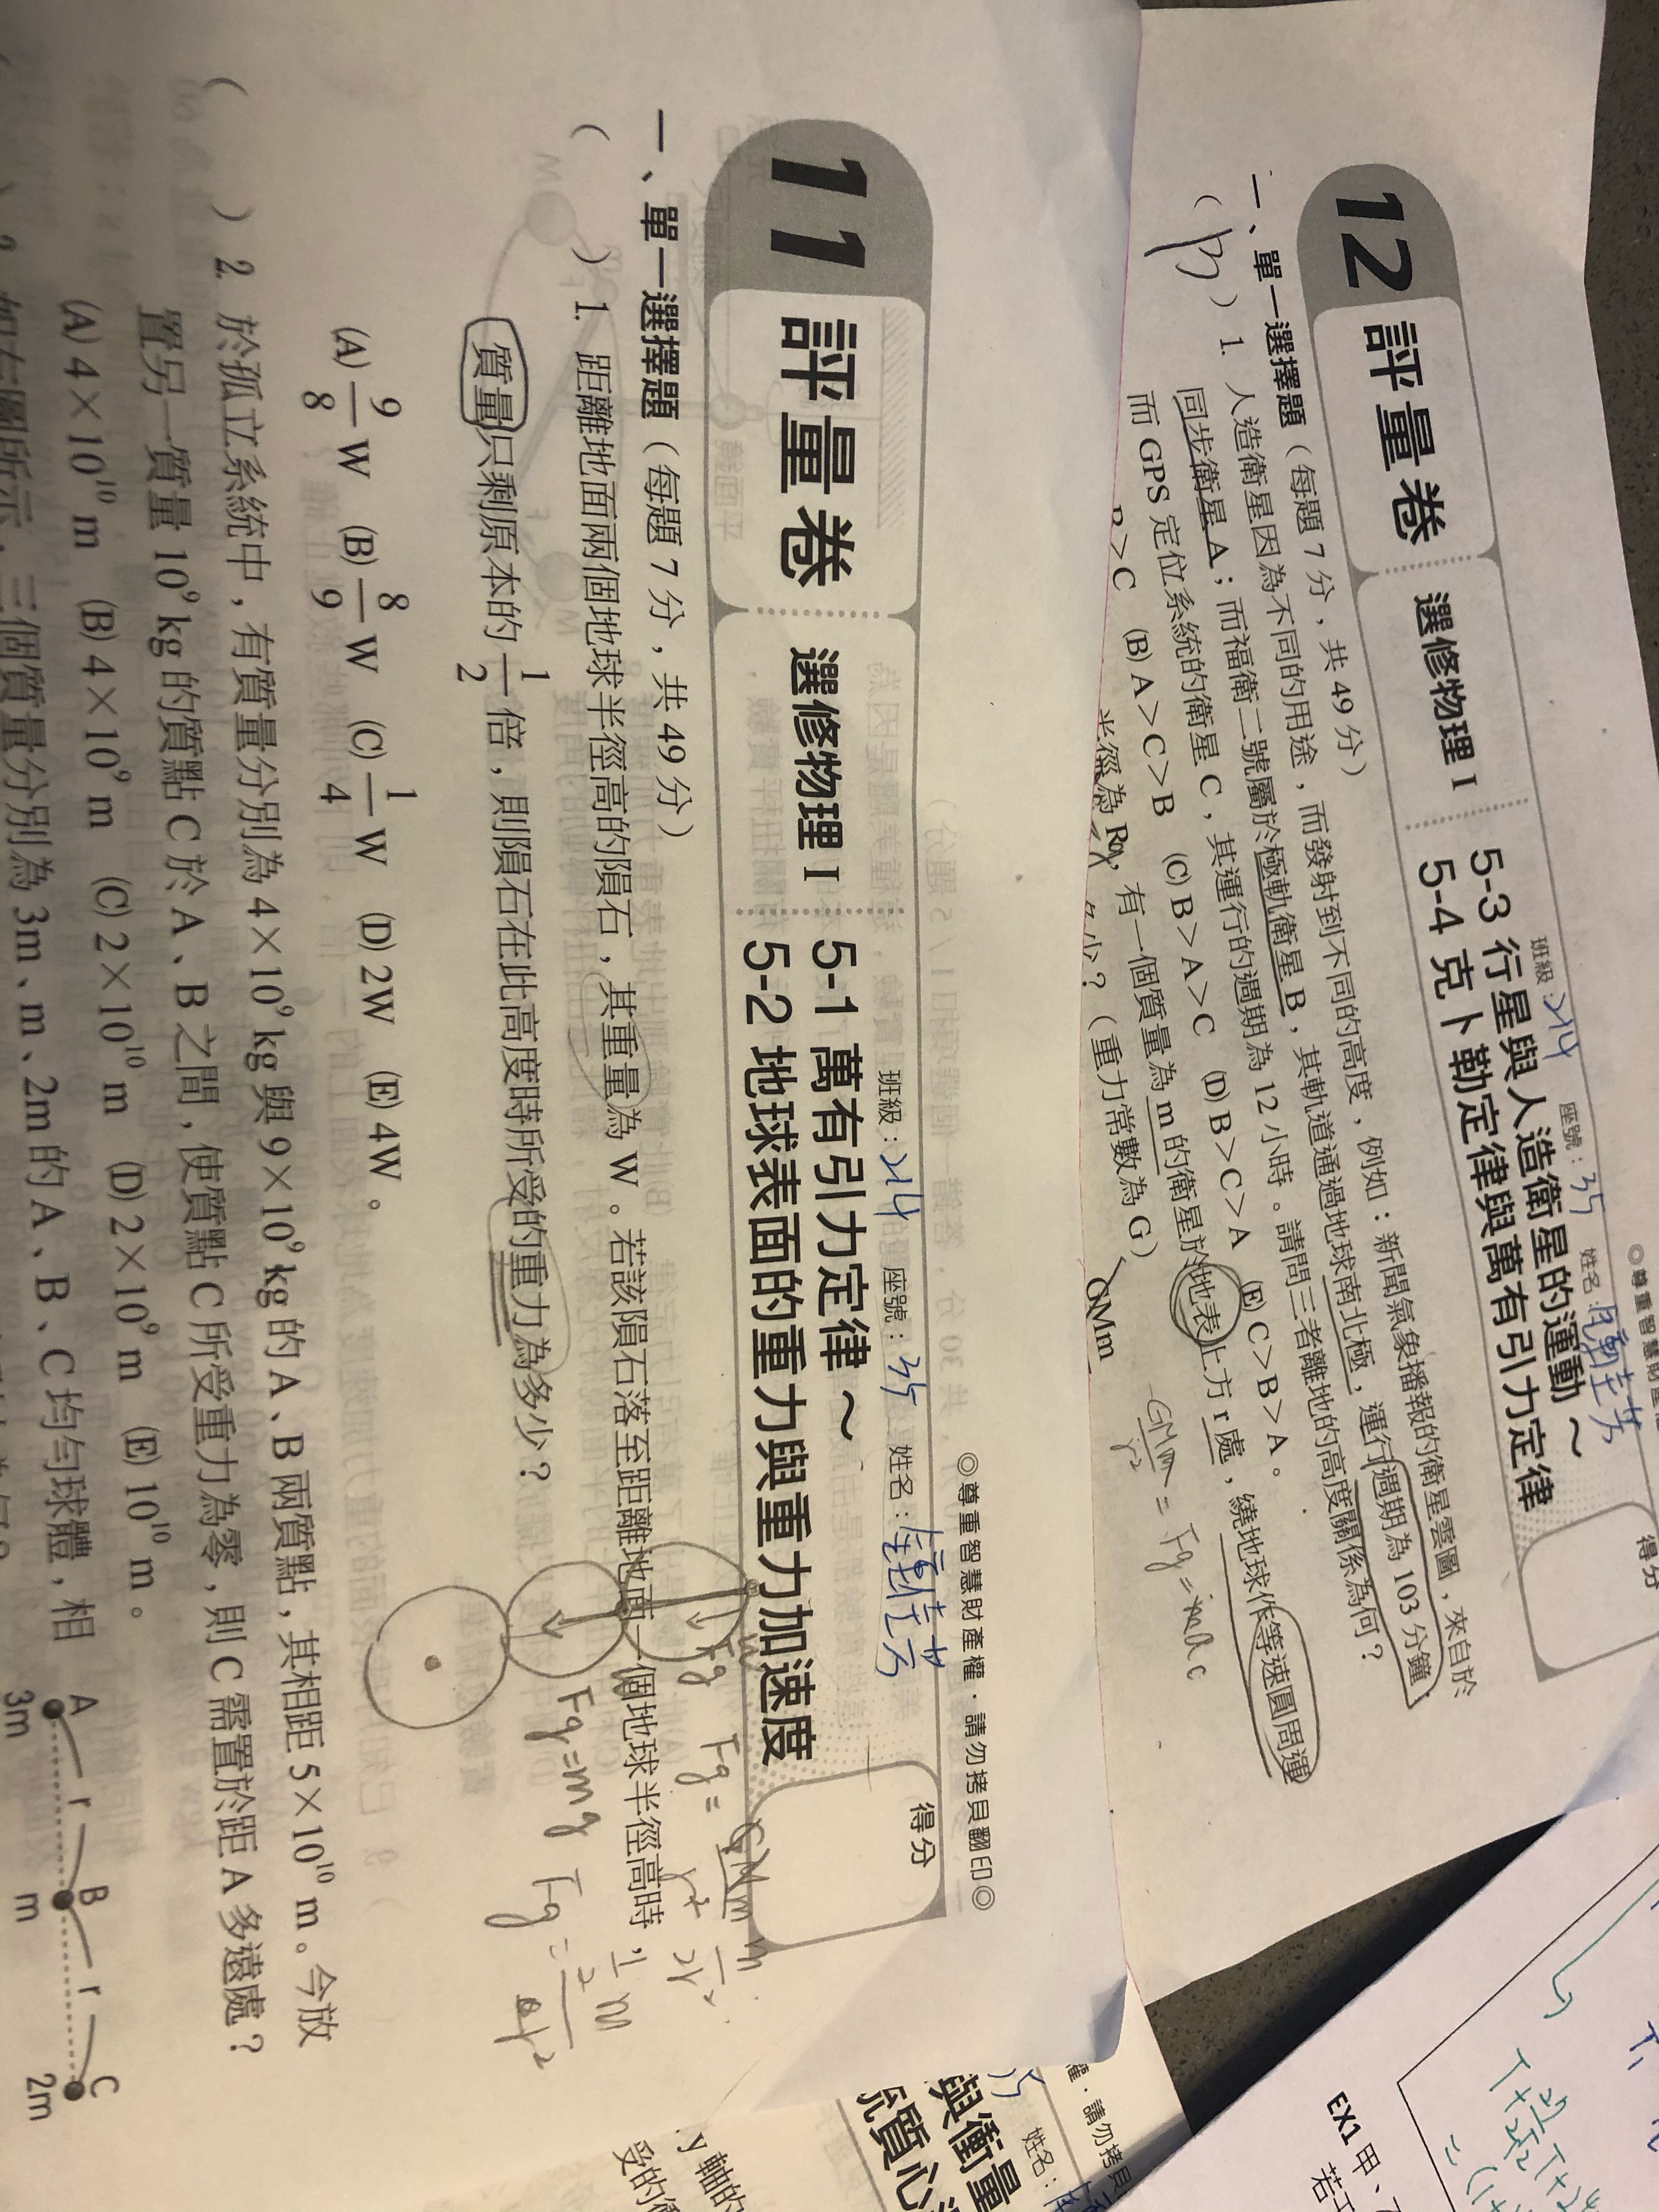 ◎尊重智慧財產權
12 評量卷 選修物理 I 5-3 行星與人造衛星的運動～
5-4 克卜勒定律與萬有引力定律
班級： 214 座號：35 姓名：
得分
一、單一選擇題（每題 7 分，共 49 分）
( B ) 1. 人造衛星因為不同的用途，而發射到不同的高度，例如：新聞氣象播報的衛星雲圖，來自於
同步衛星 A；而福衛二號屬於極軌衛星 B，其軌道通過地球南北極，運行週期為 103 分鐘；
而 GPS 定位系統的衛星 C，其運行的週期為 12 小時。請問三者離地的高度關係為何？
B>C (B) A>C>B (C) B>A>C (D) B>C>A (E) C>B>A。
半徑為 R，有一個質量為 m 的衛星於地表上方 r 處，繞地球作等速圓周運
多少？（重力常數為 G）
GMm
GMm/r² = Fg = mac
◎尊重智慧財產權．請勿拷貝翻印◎
班級： 214 座號：35 姓名：
11 評量卷 選修物理 I 5-1 萬有引力定律～
5-2 地球表面的重力與重力加速度
得分
一、單一選擇題（每題 7 分，共 49 分）
( ) 1. 距離地面兩個地球半徑高的隕石，其重量為 W。若該隕石落至距離地面一個地球半徑高時，
質量只剩原本的 1/2 倍，則隕石在此高度時所受的重力為多少？
(A) 9/8 W (B) 8/9 W (C) 1/4 W (D) 2W (E) 4W。
Fg
Fg = GMm/r²
Fg=mg
( ) 2. 於孤立系統中，有質量分別為 4×10⁹ kg 與 9×10⁹ kg 的 A、B 兩質點，其相距 5×10¹⁰ m。今放
置另一質量 10⁹ kg 的質點 C 於 A、B 之間，使質點 C 所受重力為零，則 C 需置於距 A 多遠處？
(A) 4×10¹⁰ m (B) 4×10⁹ m (C) 2×10¹⁰ m (D) 2×10⁹ m (E) 10¹⁰ m。
如右圖所示，三個質量分別為 3m、m、2m 的 A、B、C 均勻球體，相
A r B r C
3m m 2m
權．請勿拷貝
姓名：
與衡量
統質心
y 軸的
受的
EX1 甲、
若